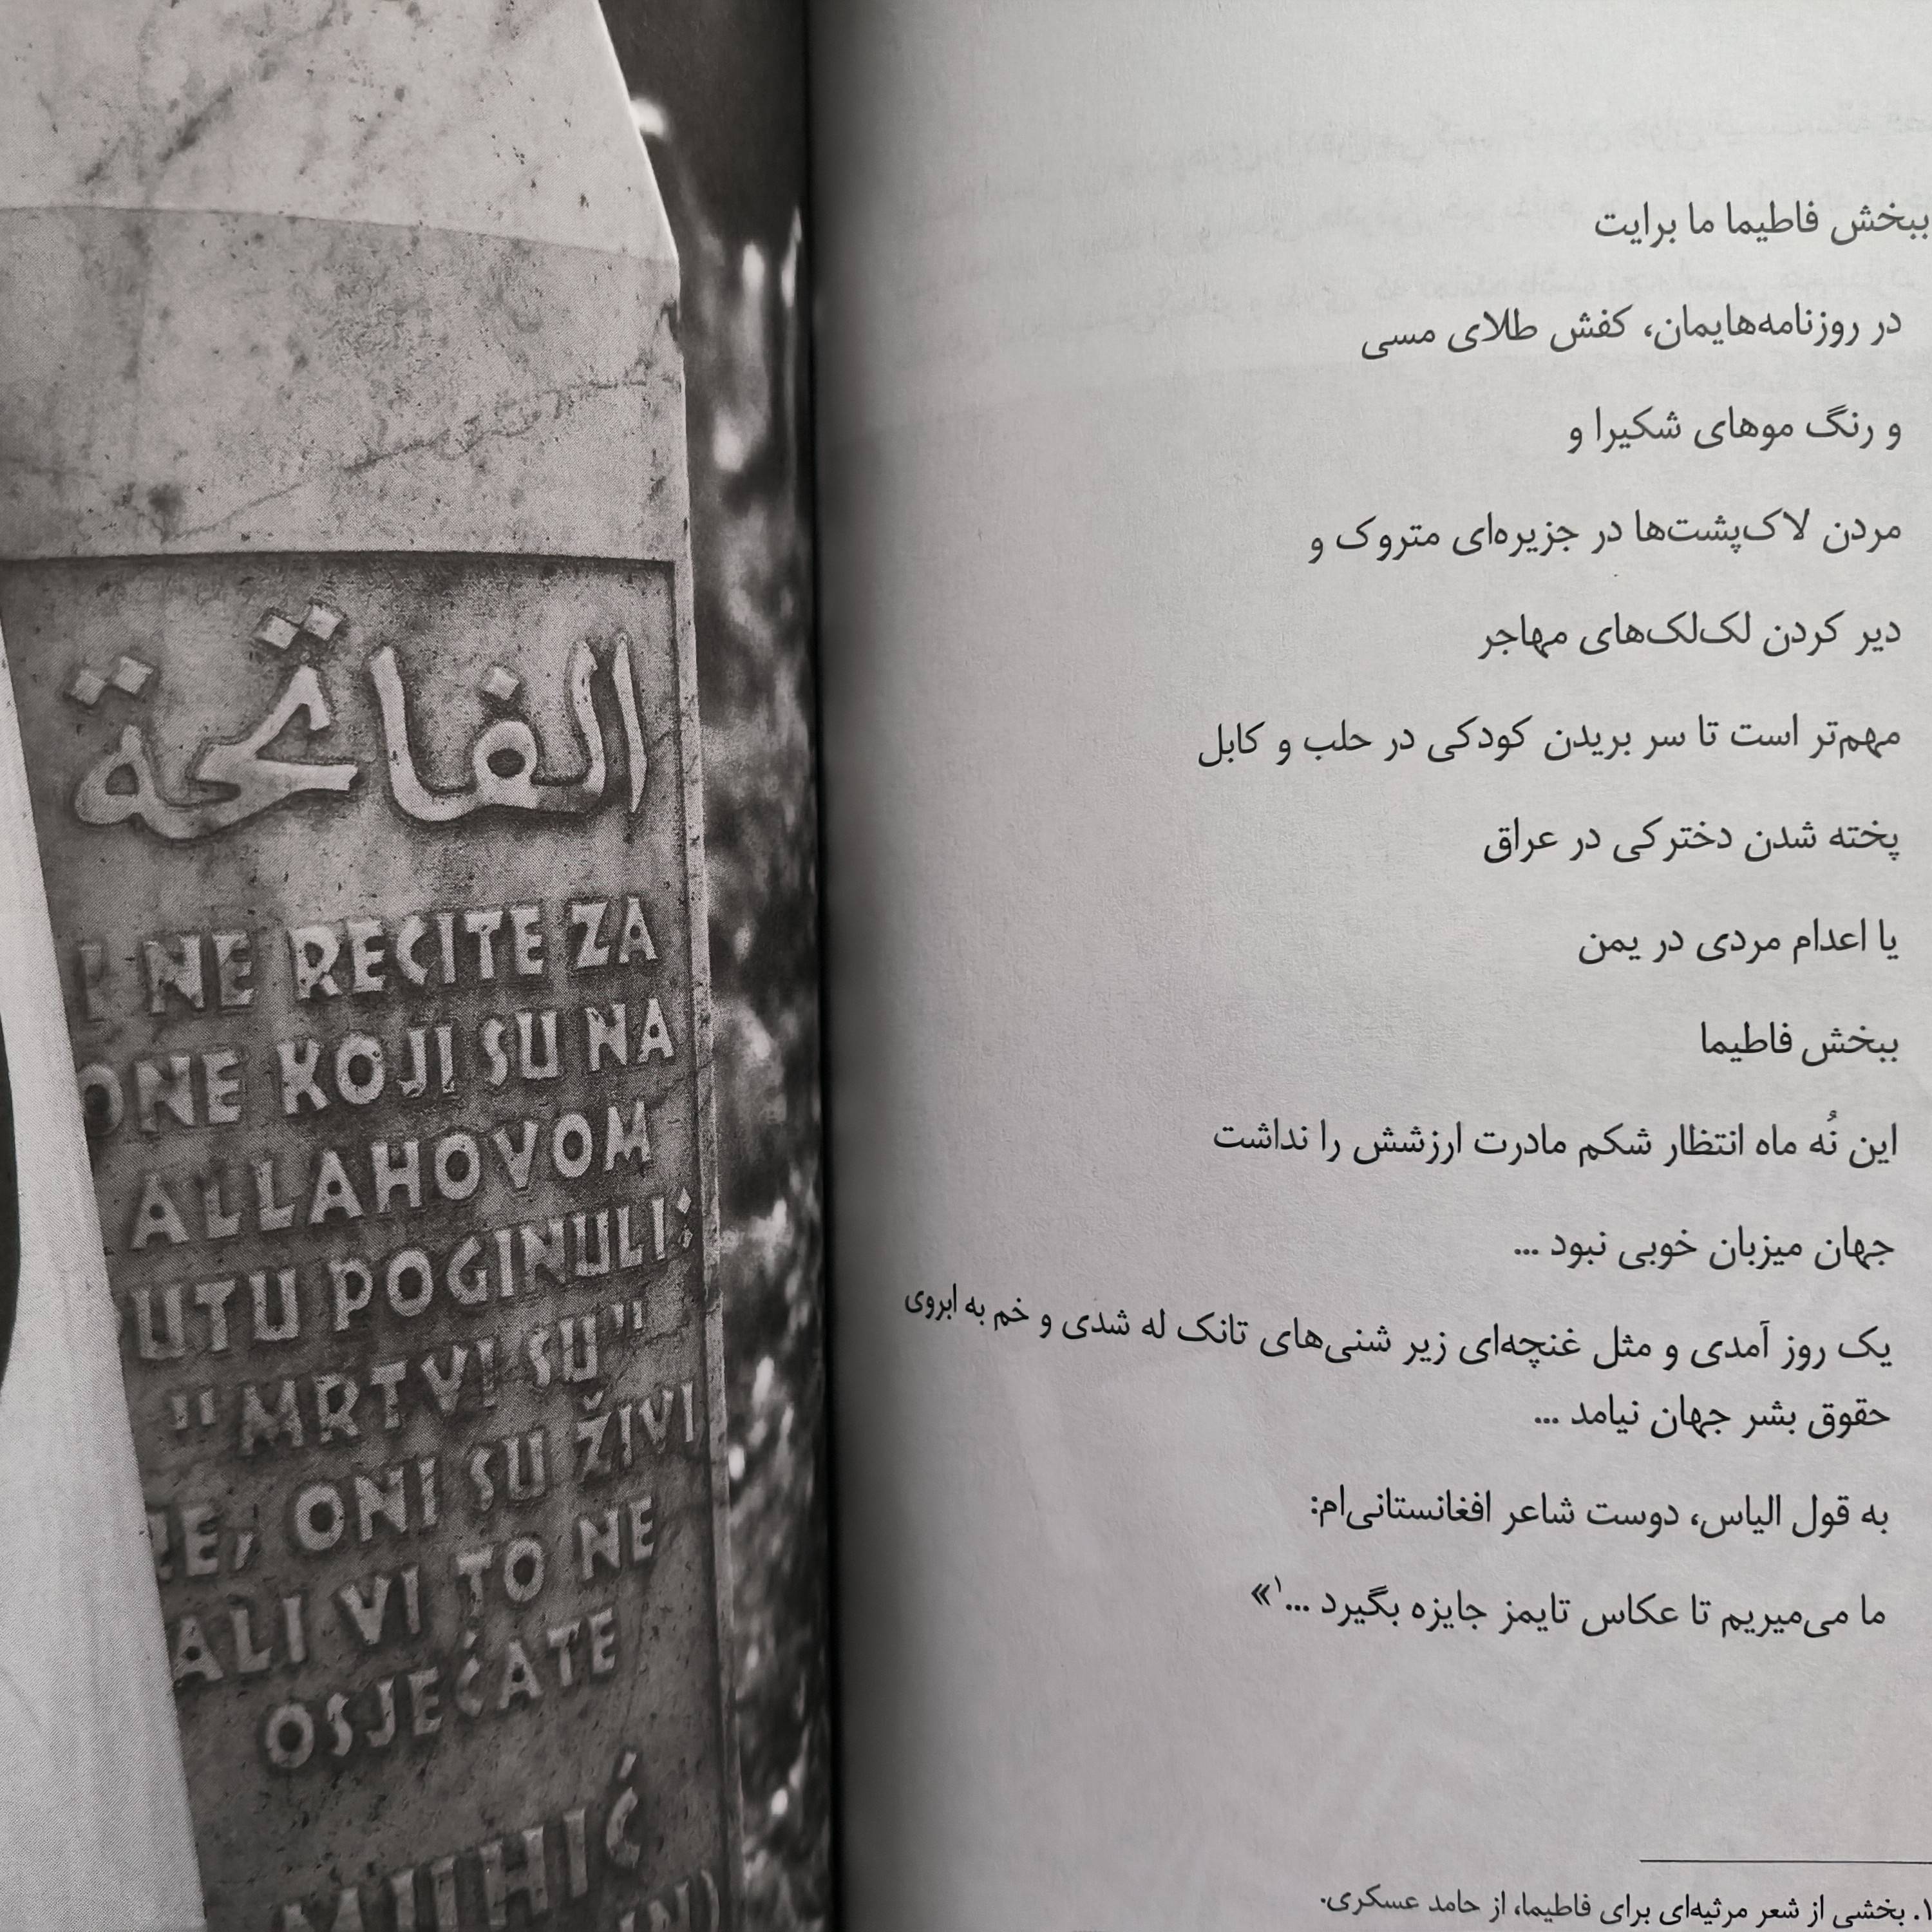 الفاتحة
I NE RECITE ZA
ONE KOJI SU NA
ALLAHOVOM
PUTU POGINULI:
"MRTVI SU"
NE, ONI SU ŽIVI
ALI VI TO NE
OSJEĆATE
ببخش فاطیما ما برایت
در روزنامه‌هایمان، کفش طلای مسی
و رنگ موهای شکیرا و
مردن لاک‌پشت‌ها در جزیره‌ای متروک و
دیر کردن لک‌لک‌های مهاجر
مهم‌تر است تا سر بریدن کودکی در حلب و کابل
پخته شدن دخترکی در عراق
یا اعدام مردی در یمن
ببخش فاطیما
این نُه ماه انتظار شکم مادرت ارزشش را نداشت
جهان میزبان خوبی نبود ...
یک روز آمدی و مثل غنچه‌ای زیر شنی‌های تانک له شدی و خم به ابروی
حقوق بشر جهان نیامد ...
به قول الیاس، دوست شاعر افغانستانی‌ام:
ما می‌میریم تا عکاس تایمز جایزه بگیرد ...۱»
۱. بخشی از شعر مرثیه‌ای برای فاطیما، از حامد عسکری.